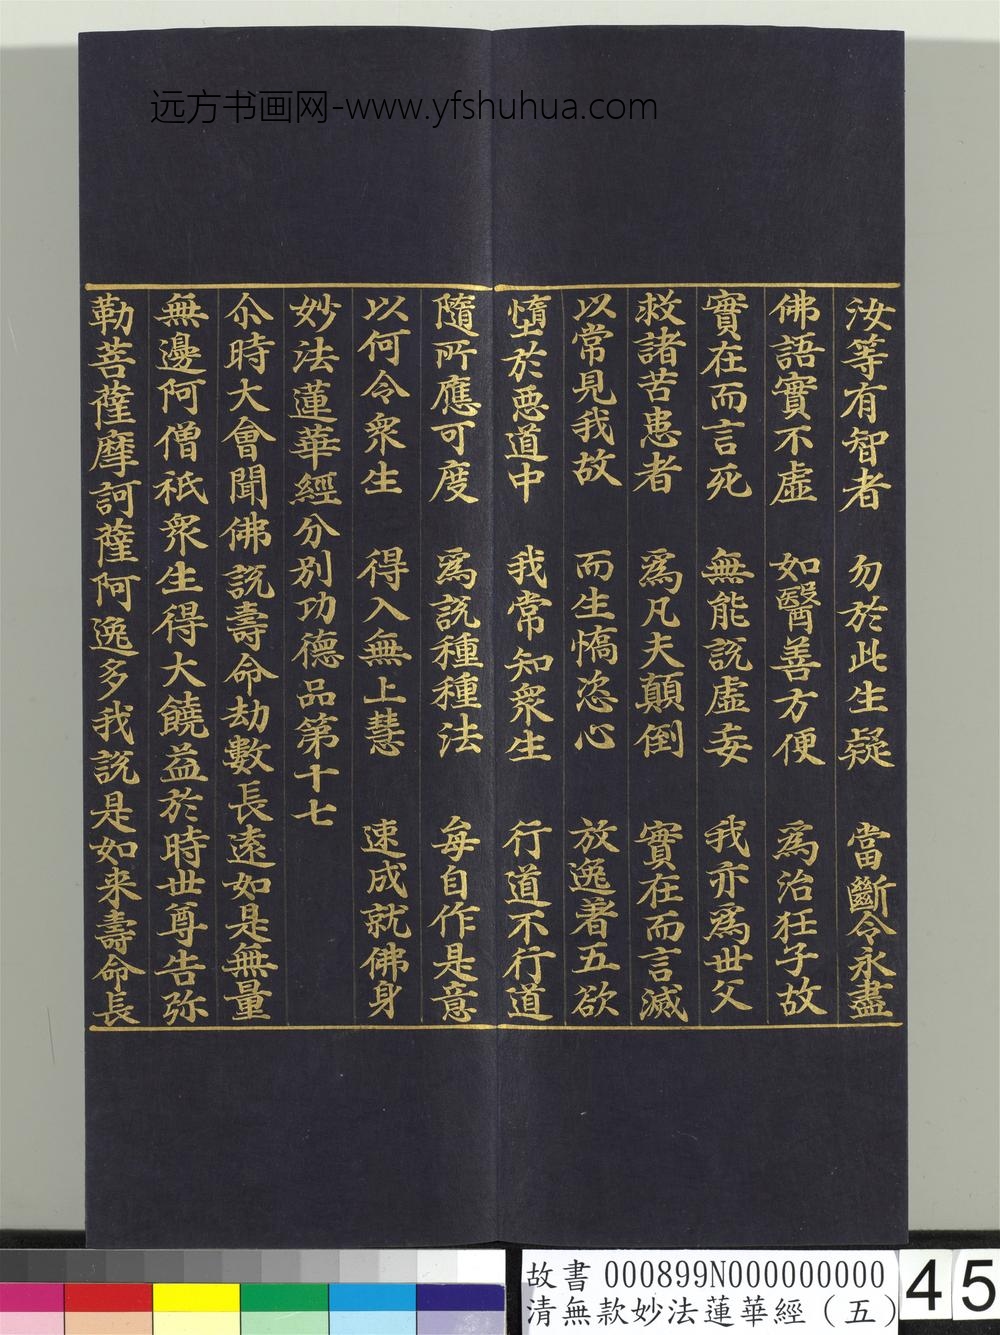 远方书画网-www.yfshuhua.com
汝等有智者　勿於此生疑　當斷令永盡
佛語實不虛　如醫善方便　為治狂子故
實在而言死　無能說虛妄　我亦為世父
救諸苦患者　為凡夫顛倒　實在而言滅
以常見我故　而生憍恣心　放逸著五欲
墮於惡道中　我常知眾生　行道不行道
隨所應可度　為說種種法　每自作是意
以何令眾生　得入無上慧　速成就佛身
妙法蓮華經分別功德品第十七
尒時大會聞佛說壽命劫數長遠如是無量
無邊阿僧祇眾生得大饒益於時世尊告弥
勒菩薩摩訶薩阿逸多我說是如来壽命長
故書 000899N000000000
清無款妙法蓮華經（五）
45